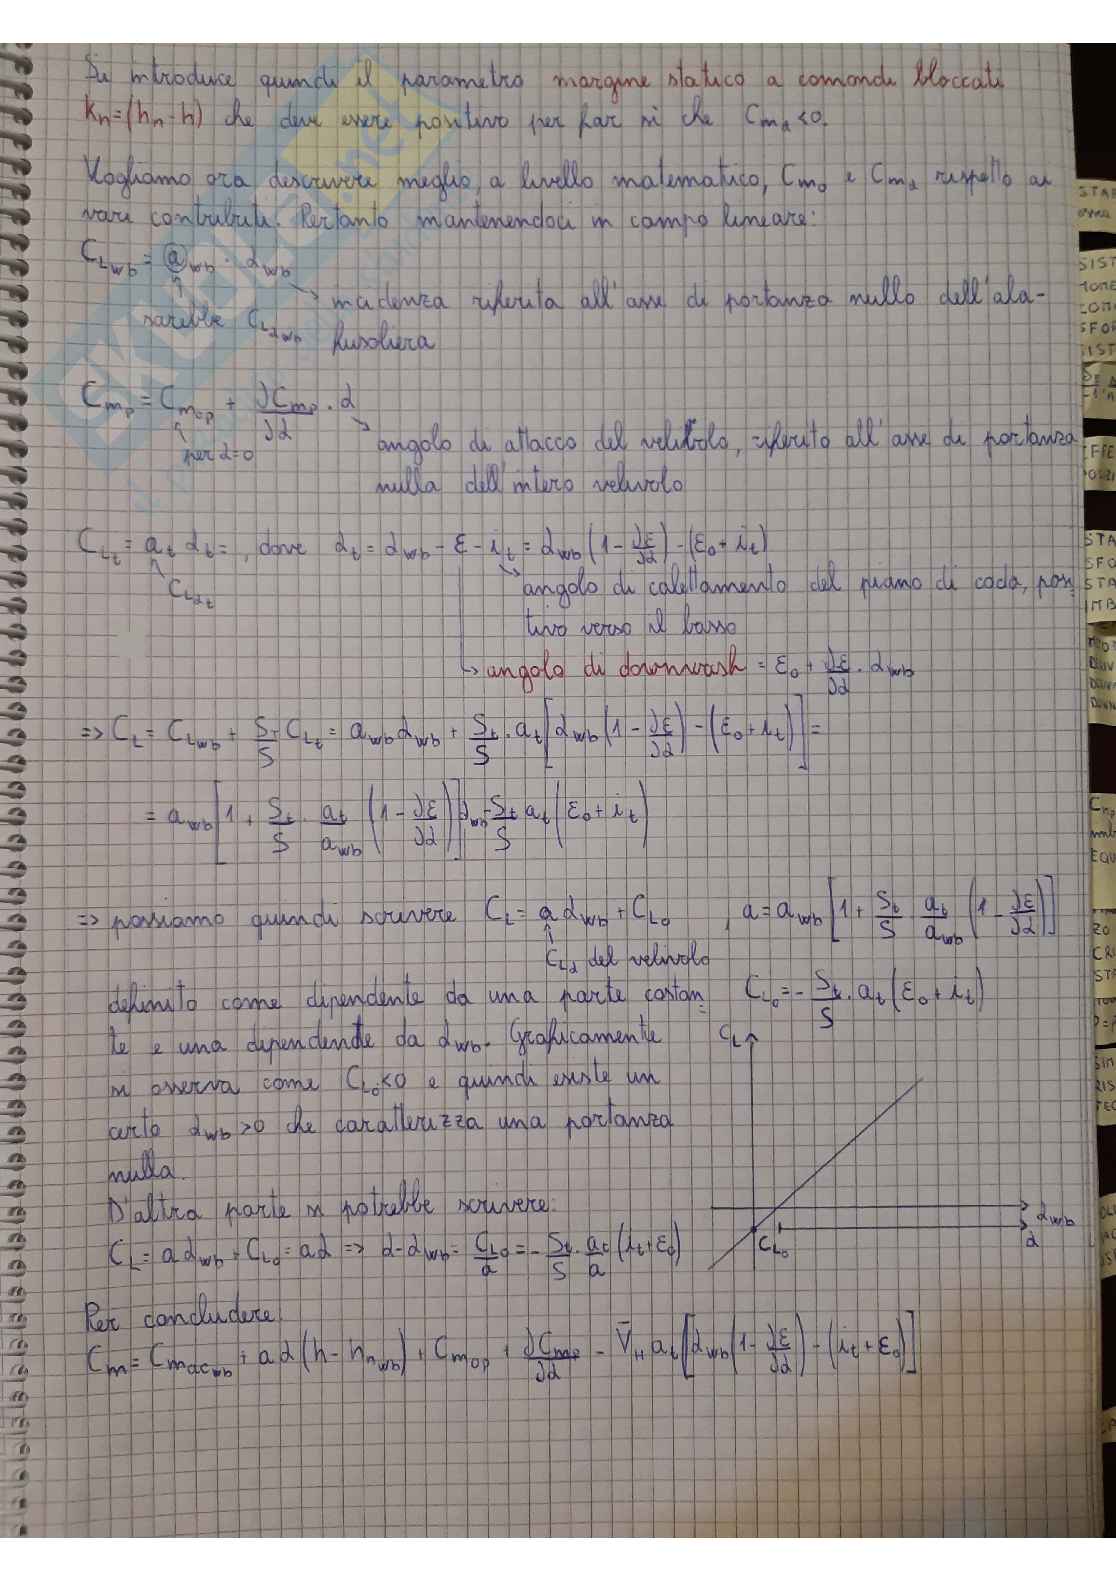 Si introduce quindi il parametro margine statico a comandi bloccati
Kn=(hn-h) che deve essere positivo per far sì che Cmα<0.
Vogliamo ora descrivere meglio, a livello matematico, Cm0 e Cmα rispetto ai
vari contributi. Pertanto mantenendoci in campo lineare:
CLwb = awb · αwb
incidenza riferita all'asse di portanza nulla dell'ala-
sarebbe CLαwb
fusoliera
Cmp = Cm0p + ∂Cmp/∂α · α
per α=0
angolo di attacco del velivolo, riferito all'asse di portanza
nulla dell'intero velivolo
CLt = at αt =, dove αt = αwb - ε - it = αwb (1 - ∂ε/∂α) - (ε0 + it)
CLαt
angolo di calettamento del piano di coda, posi
tivo verso il basso
↳ angolo di downwash = ε0 + ∂ε/∂α · αwb
=> CL = CLwb + St/S CLt = awb αwb + St/S · at [αwb (1 - ∂ε/∂α) - (ε0 + it)] =
= awb [1 + St/S · at/awb (1 - ∂ε/∂α)] αwb - St/S at (ε0 + it)
=> possiamo quindi scrivere CL = a αwb + CL0 , a = awb [1 + St/S at/awb (1 - ∂ε/∂α)]
CLα del velivolo
definito come dipendente da una parte costan CL0 = - St/S · at (ε0 + it)
te e una dipendente da αwb. Graficamente
CL
si osserva come CL0<0 e quindi esiste un
certo αwb>0 che caratterizza una portanza
nulla.
D'altra parte si potrebbe scrivere:
αwb
CL = a αwb + CL0 = a α => α - αwb = CL0/a = - St/S · at/a (it + ε0)
CL0
α
Per concludere:
Cm = Cmacwb + a α (h - hnwb) + Cm0p + ∂Cmp/∂α - V̄H at [αwb (1 - ∂ε/∂α) - (it + ε0)]
SKUOLA.net